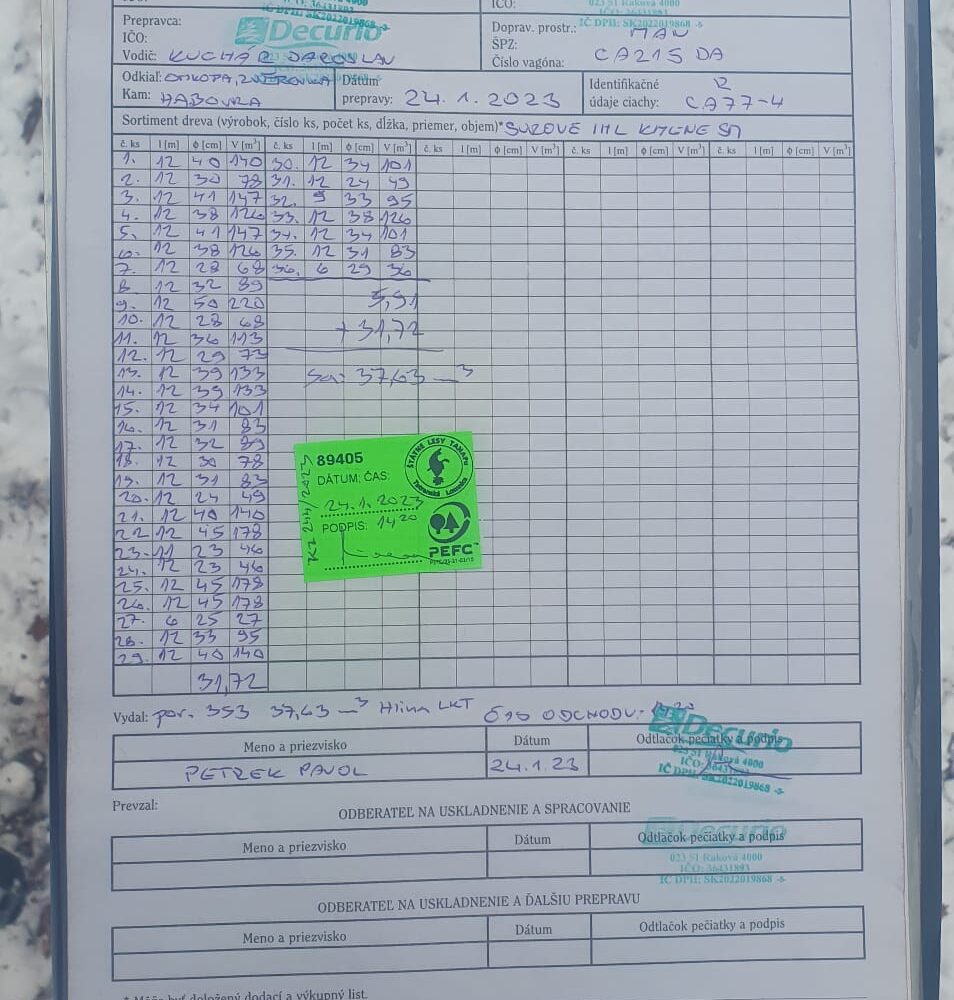 IČO: 36431893
IČ DPH: SK2022019868 -8-
IČO:
023 51 Raková 4000
IČO: 36431893
IČ DPH: SK2022019868 -8-
Prepravca:
IČO:
Decurio
Vodič: KUCHÁR JAROSLAV
Doprav. prostr.: MAN
ŠPZ:
Číslo vagóna: CA215 DA
Odkiaľ: ZVEROVKA
Kam: HABOVKA
Dátum
prepravy: 24.1.2023
Identifikačné
údaje ciachy: CA77-4
Sortiment dreva (výrobok, číslo ks, počet ks, dĺžka, priemer, objem)* SUROVÉ IHL KMENE SM
č. ks l [m] ϕ [cm] V [m³] č. ks l [m] ϕ [cm] V [m³] č. ks l [m] ϕ [cm] V [m³] č. ks l [m] ϕ [cm] V [m³] č. ks l [m] ϕ [cm] V [m³]
1. 12 40 140 30. 12 34 101
2. 12 30 78 31. 12 24 49
3. 12 41 147 32. 9 33 95
4. 12 38 126 33. 12 38 126
5. 12 41 147 34. 12 34 101
6. 12 38 126 35. 12 31 83
7. 12 28 68 36. 6 29 36
8. 12 32 89
9. 12 50 220 5,91
10. 12 28 68 + 31,72
11. 12 36 113
12. 12 29 73
13. 12 39 133 37,63 m³
14. 12 39 133
15. 12 34 101
16. 12 31 83
17. 12 32 89
18. 12 30 78
19. 12 31 83
20. 12 24 49
21. 12 40 140
22. 12 45 178
23. 11 23 46
24. 12 23 46
25. 12 45 178
26. 12 45 178
27. 6 25 27
28. 12 33 95
29. 12 40 140
31,72
89405
DÁTUM; ČAS:
24.1.2023
PODPIS: 14 20
KZ 244/2023
ŠTÁTNE LESY TANAPu
Tatranská Lomnica
PEFC™
Vydal: por. 353 37,63 m³ Hlina LKT ČAS ODCHODU:
Decurio
Meno a priezvisko
Dátum
Odtlačok pečiatky a podpis
PETREK PAVOL
24.1.23
023 51 Raková 4000
IČO: 36431893
IČ DPH: SK2022019868 -8-
Prevzal:
ODBERATEĽ NA USKLADNENIE A SPRACOVANIE
Decurio
Meno a priezvisko
Dátum
Odtlačok pečiatky a podpis
023 51 Raková 4000
IČO: 36431893
IČ DPH: SK2022019868 -8-
ODBERATEĽ NA USKLADNENIE A ĎALŠIU PREPRAVU
Meno a priezvisko
Dátum
Odtlačok pečiatky a podpis
* Môže byť doložený dodací a výkupný list.